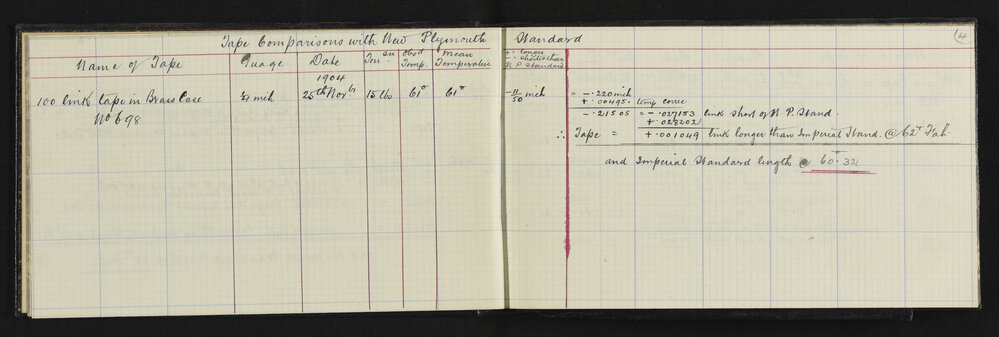 4
Tape Comparisons with New Plymouth Standard
Name of Tape Guage Date Tensn Obsd Temp. Mean Temperature + = longer - = shorter than N.P. Standard
1904
100 link tape in Brass Case ¼ inch 25th Novbr 15 lb 61° 61° -11/50 inch = -.220 inch
No 698 +.00495. temp corrn
-.21505 = -.027153 link short of N P. Stand.
+.028202
∴ Tape = +.001049 link longer than Imperial Stand. @ 62° Fah.
and Imperial Standard length @ 60°.32